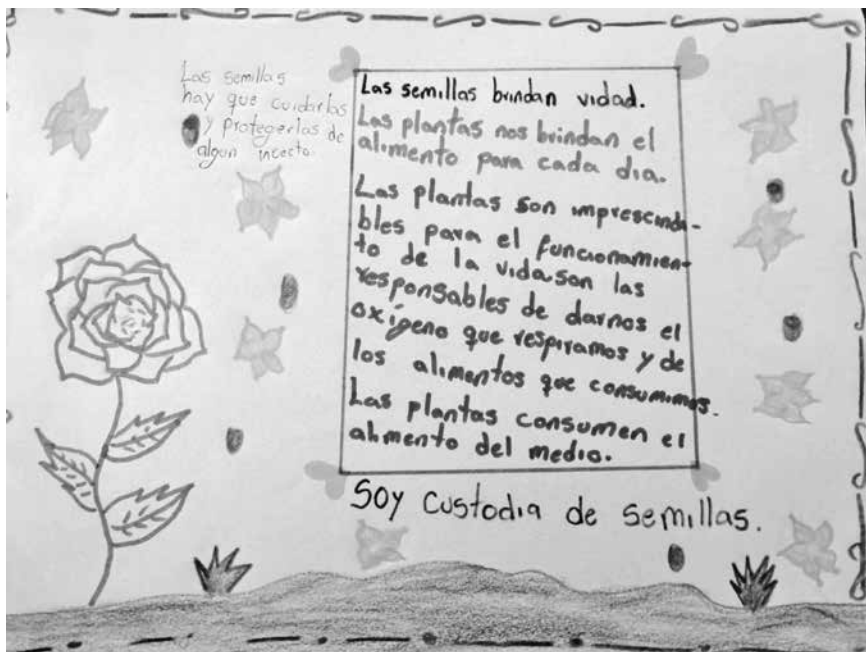 Las semillas
hay que cuidarlas
y protegerlas de
algun incecto.
Las semillas brindan vidad.
Las plantas nos brindan el
alimento para cada dia.
Las plantas son imprescindi-
bles para el funcionamien-
to de la vida son las
responsables de darnos el
oxígeno que respiramos y de
los alimentos que consumimos.
Las plantas consumen el
alimento del medio.
Soy custodia de semillas.